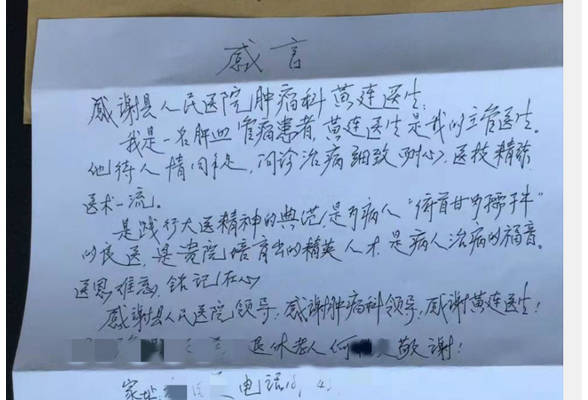 感言
感谢县人民医院肿瘤科黄连医生:
我是一名肝血管病患者,黄连医生是我的主管医生。
他待人情同手足,问诊治病细致耐心,医技精、
医术一流。
是践行大医精神的典范,是为病人“俯首甘为孺子牛”
的良医,是贵院培育出的精英人才,是病人治病的福音。
医恩难忘,铭记在心
感谢县人民医院领导,感谢肿瘤科领导,感谢黄连医生!
退休老人何 敬谢!
家址 电话